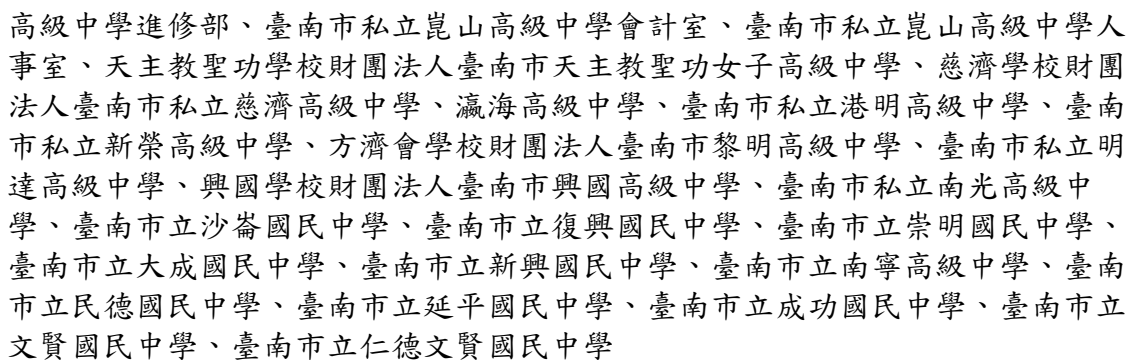 高級中學進修部、臺南市私立崑山高級中學會計室、臺南市私立崑山高級中學人
事室、天主教聖功學校財團法人臺南市天主教聖功女子高級中學、慈濟學校財團
法人臺南市私立慈濟高級中學、瀛海高級中學、臺南市私立港明高級中學、臺南
市私立新榮高級中學、方濟會學校財團法人臺南市黎明高級中學、臺南市私立明
達高級中學、興國學校財團法人臺南市興國高級中學、臺南市私立南光高級中
學、臺南市立沙崙國民中學、臺南市立復興國民中學、臺南市立崇明國民中學、
臺南市立大成國民中學、臺南市立新興國民中學、臺南市立南寧高級中學、臺南
市立民德國民中學、臺南市立延平國民中學、臺南市立成功國民中學、臺南市立
文賢國民中學、臺南市立仁德文賢國民中學